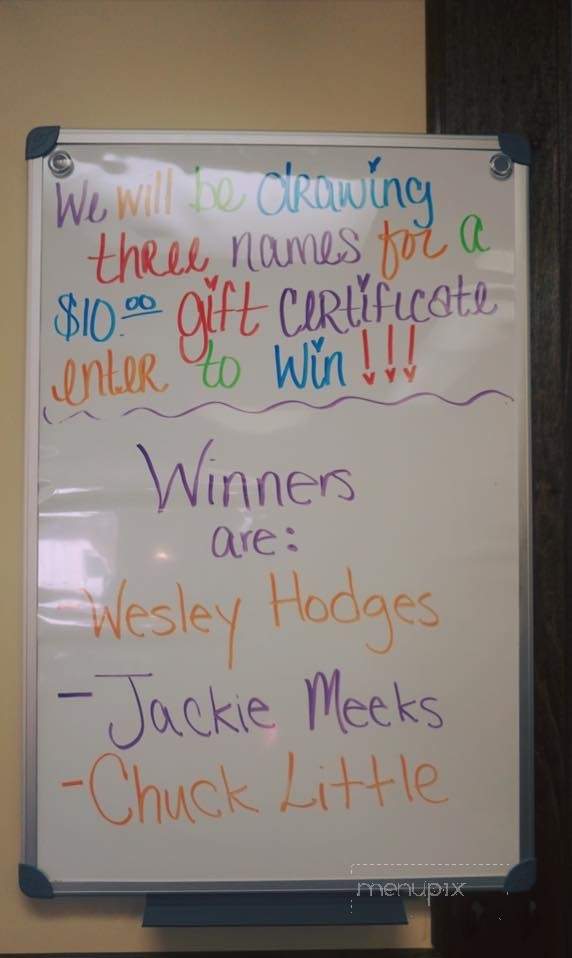 We will be drawing
three names for a
$10.00 gift certificate
enter to win!!!
Winners
are:
- Wesley Hodges
- Jackie Meeks
- Chuck Little
menupix